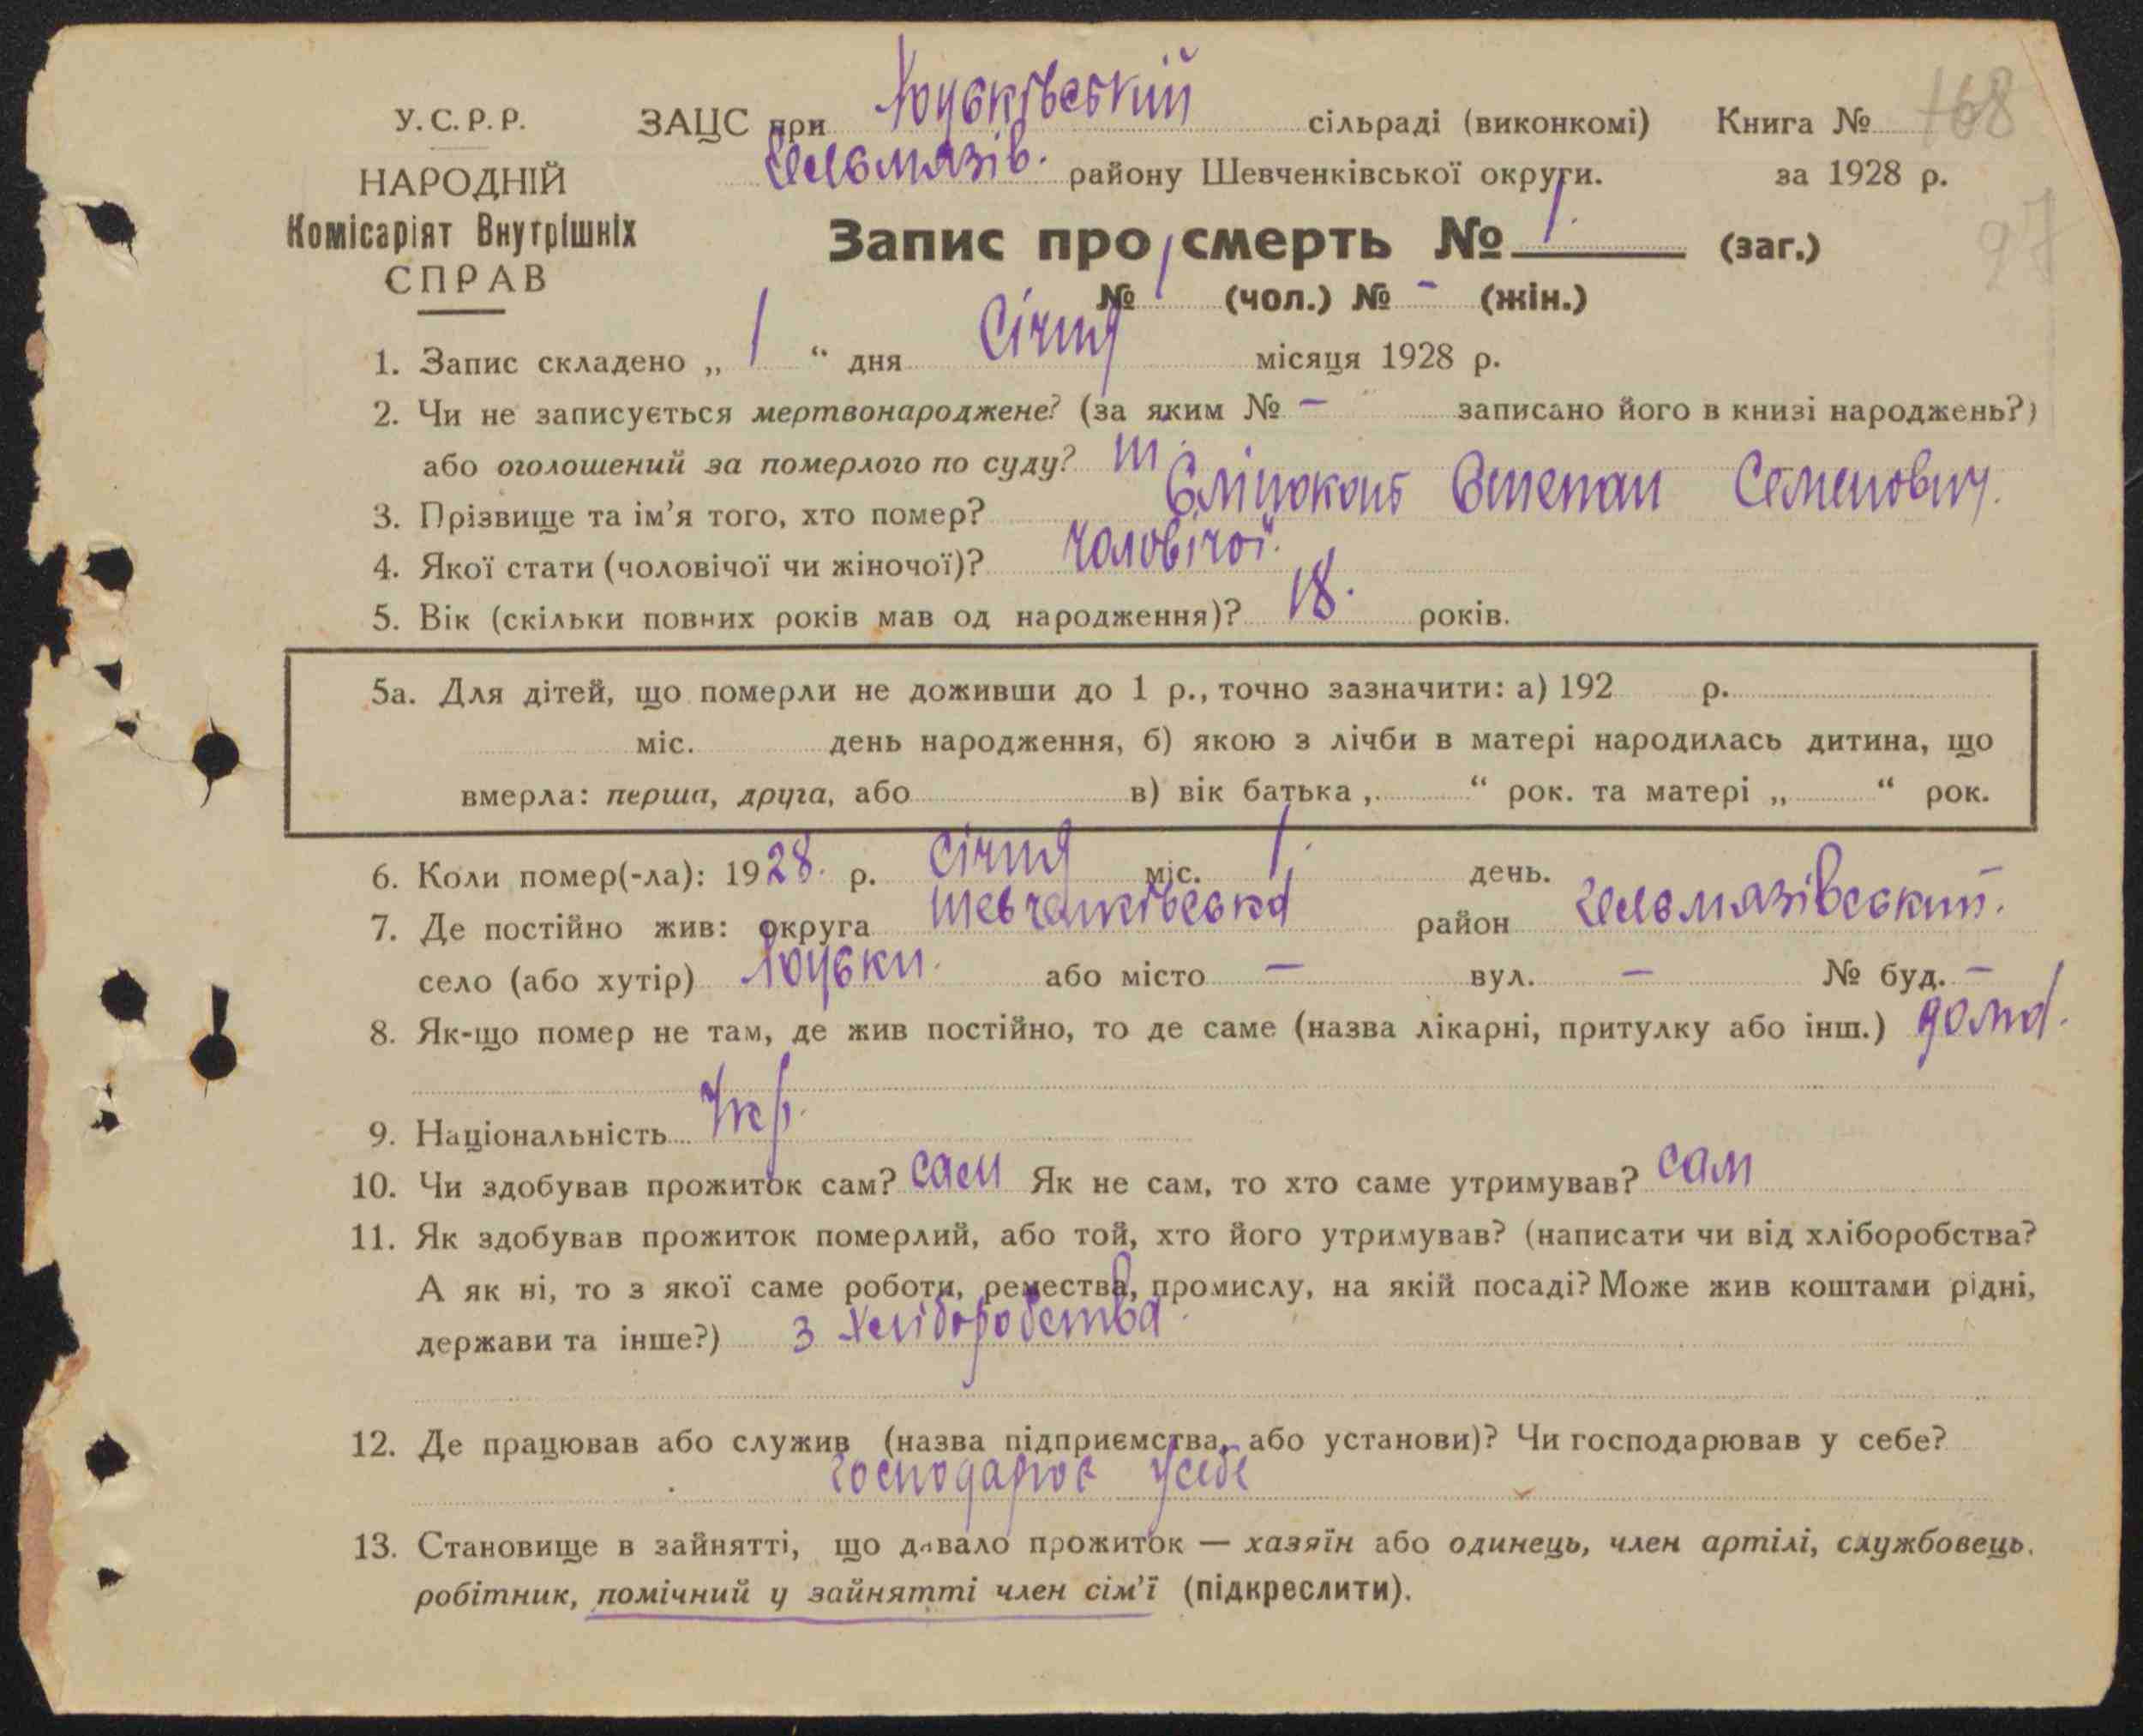 У.С.Р.Р.
НАРОДНІЙ
Комісаріят Внутрішніх
СПРАВ
ЗАЦС при Лоцьківській сільраді (виконкомі) Книга № 168
Гельмязів. району Шевченківської округи. за 1928 р.
97
Запис про смерть № 1. (заг.)
№ 1 (чол.) № - (жін.)
1. Запис складено „ 1 “ дня Січня місяця 1928 р.
2. Чи не записується мертвонароджене? (за яким № — записано його в книзі народжень?)
або оголошений за померлого по суду?
3. Прізвище та ім’я того, хто помер? Степан Семенович.
4. Якої стати (чоловічої чи жіночої)? чоловічої.
5. Вік (скільки повних років мав од народження)? 18. років.
5а. Для дітей, що померли не доживши до 1 р., точно зазначити: а) 192 р.
міс. день народження, б) якою з лічби в матері народилась дитина, що
вмерла: перша, друга, або в) вік батька „ “ рок. та матері „ “ рок.
6. Коли помер(-ла): 1928. р. січня міс. 1. день.
7. Де постійно жив: округа Шевченківська район Гельмязівський.
село (або хутір) Лоцьки. або місто — вул. — № буд. —
8. Як-що помер не там, де жив постійно, то де саме (назва лікарні, притулку або інш.) дома.
9. Національність Укр.
10. Чи здобував прожиток сам? сам Як не сам, то хто саме утримував? сам
11. Як здобував прожиток померлий, або той, хто його утримував? (написати чи від хліборобства?
А як ні, то з якої саме роботи, ремества, промислу, на якій посаді? Може жив коштами рідні,
держави та інше?) З хліборобства.
12. Де працював або служив (назва підприємства, або установи)? Чи господарював у себе?
господарюв усебе
13. Становище в зайнятті, що давало прожиток — хазяїн або одинець, член артілі, службовець,
робітник, помічний у зайнятті член сім’ї (підкреслити).